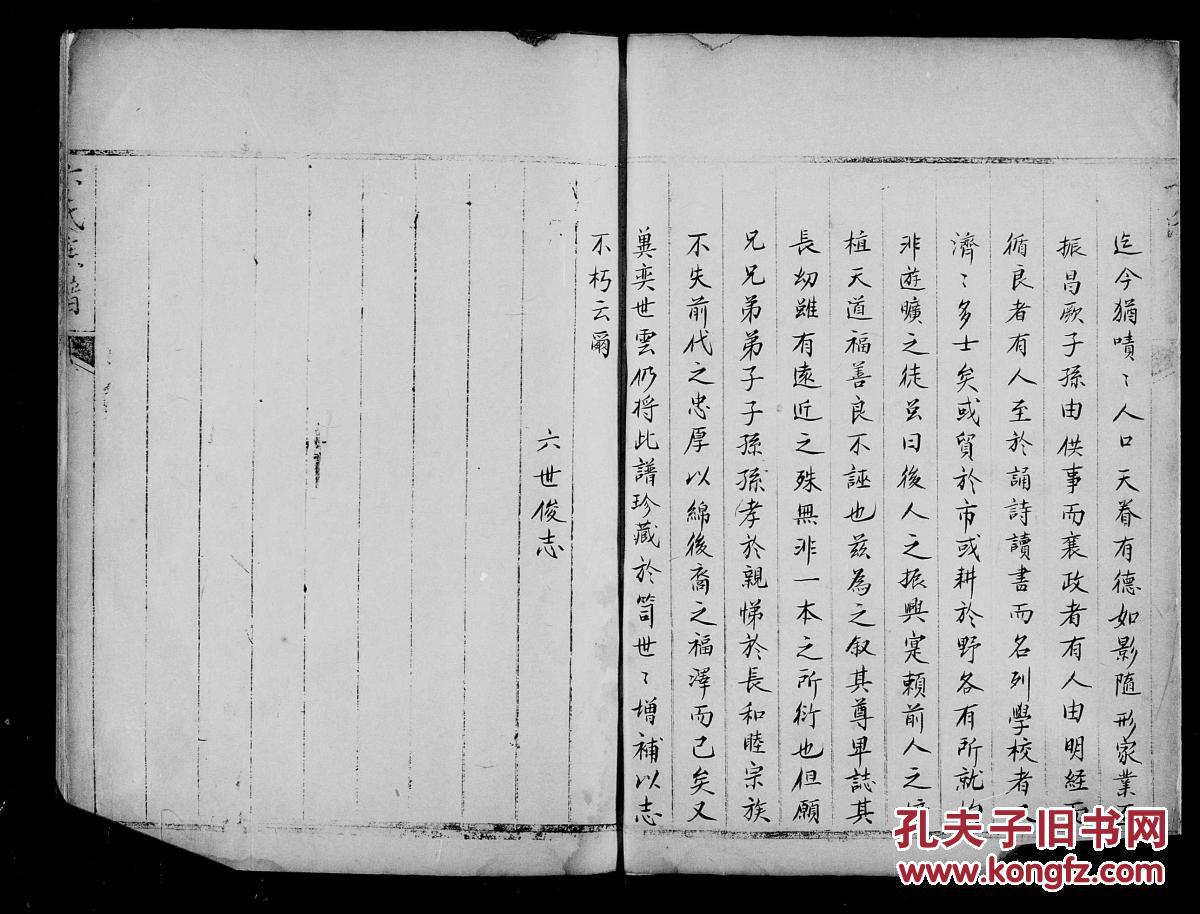 迄今猶嘖〻人口天眷有德如影隨形家業
振昌厥子孫由供事而襄政者有人由明經而
循良者有人至於誦詩讀書而名列學校者又
濟〻多士矣或貿於市或耕於野各有所就
非遊曠之徒豈曰後人之振興寔頼前人之
植天道福善良不誣也茲為之叙其尊卑誌其
長幼雖有遠近之殊無非一本之所衍也但願
兄兄弟弟子子孫孫孝於親悌於長和睦宗族
不失前代之忠厚以綿後裔之福澤而已矣又
兾奕世雲仍将此譜珍藏於笥世〻增補以志
不朽云爾
六世俊志
氏
譜
孔夫子旧书网
www.kongfz.com